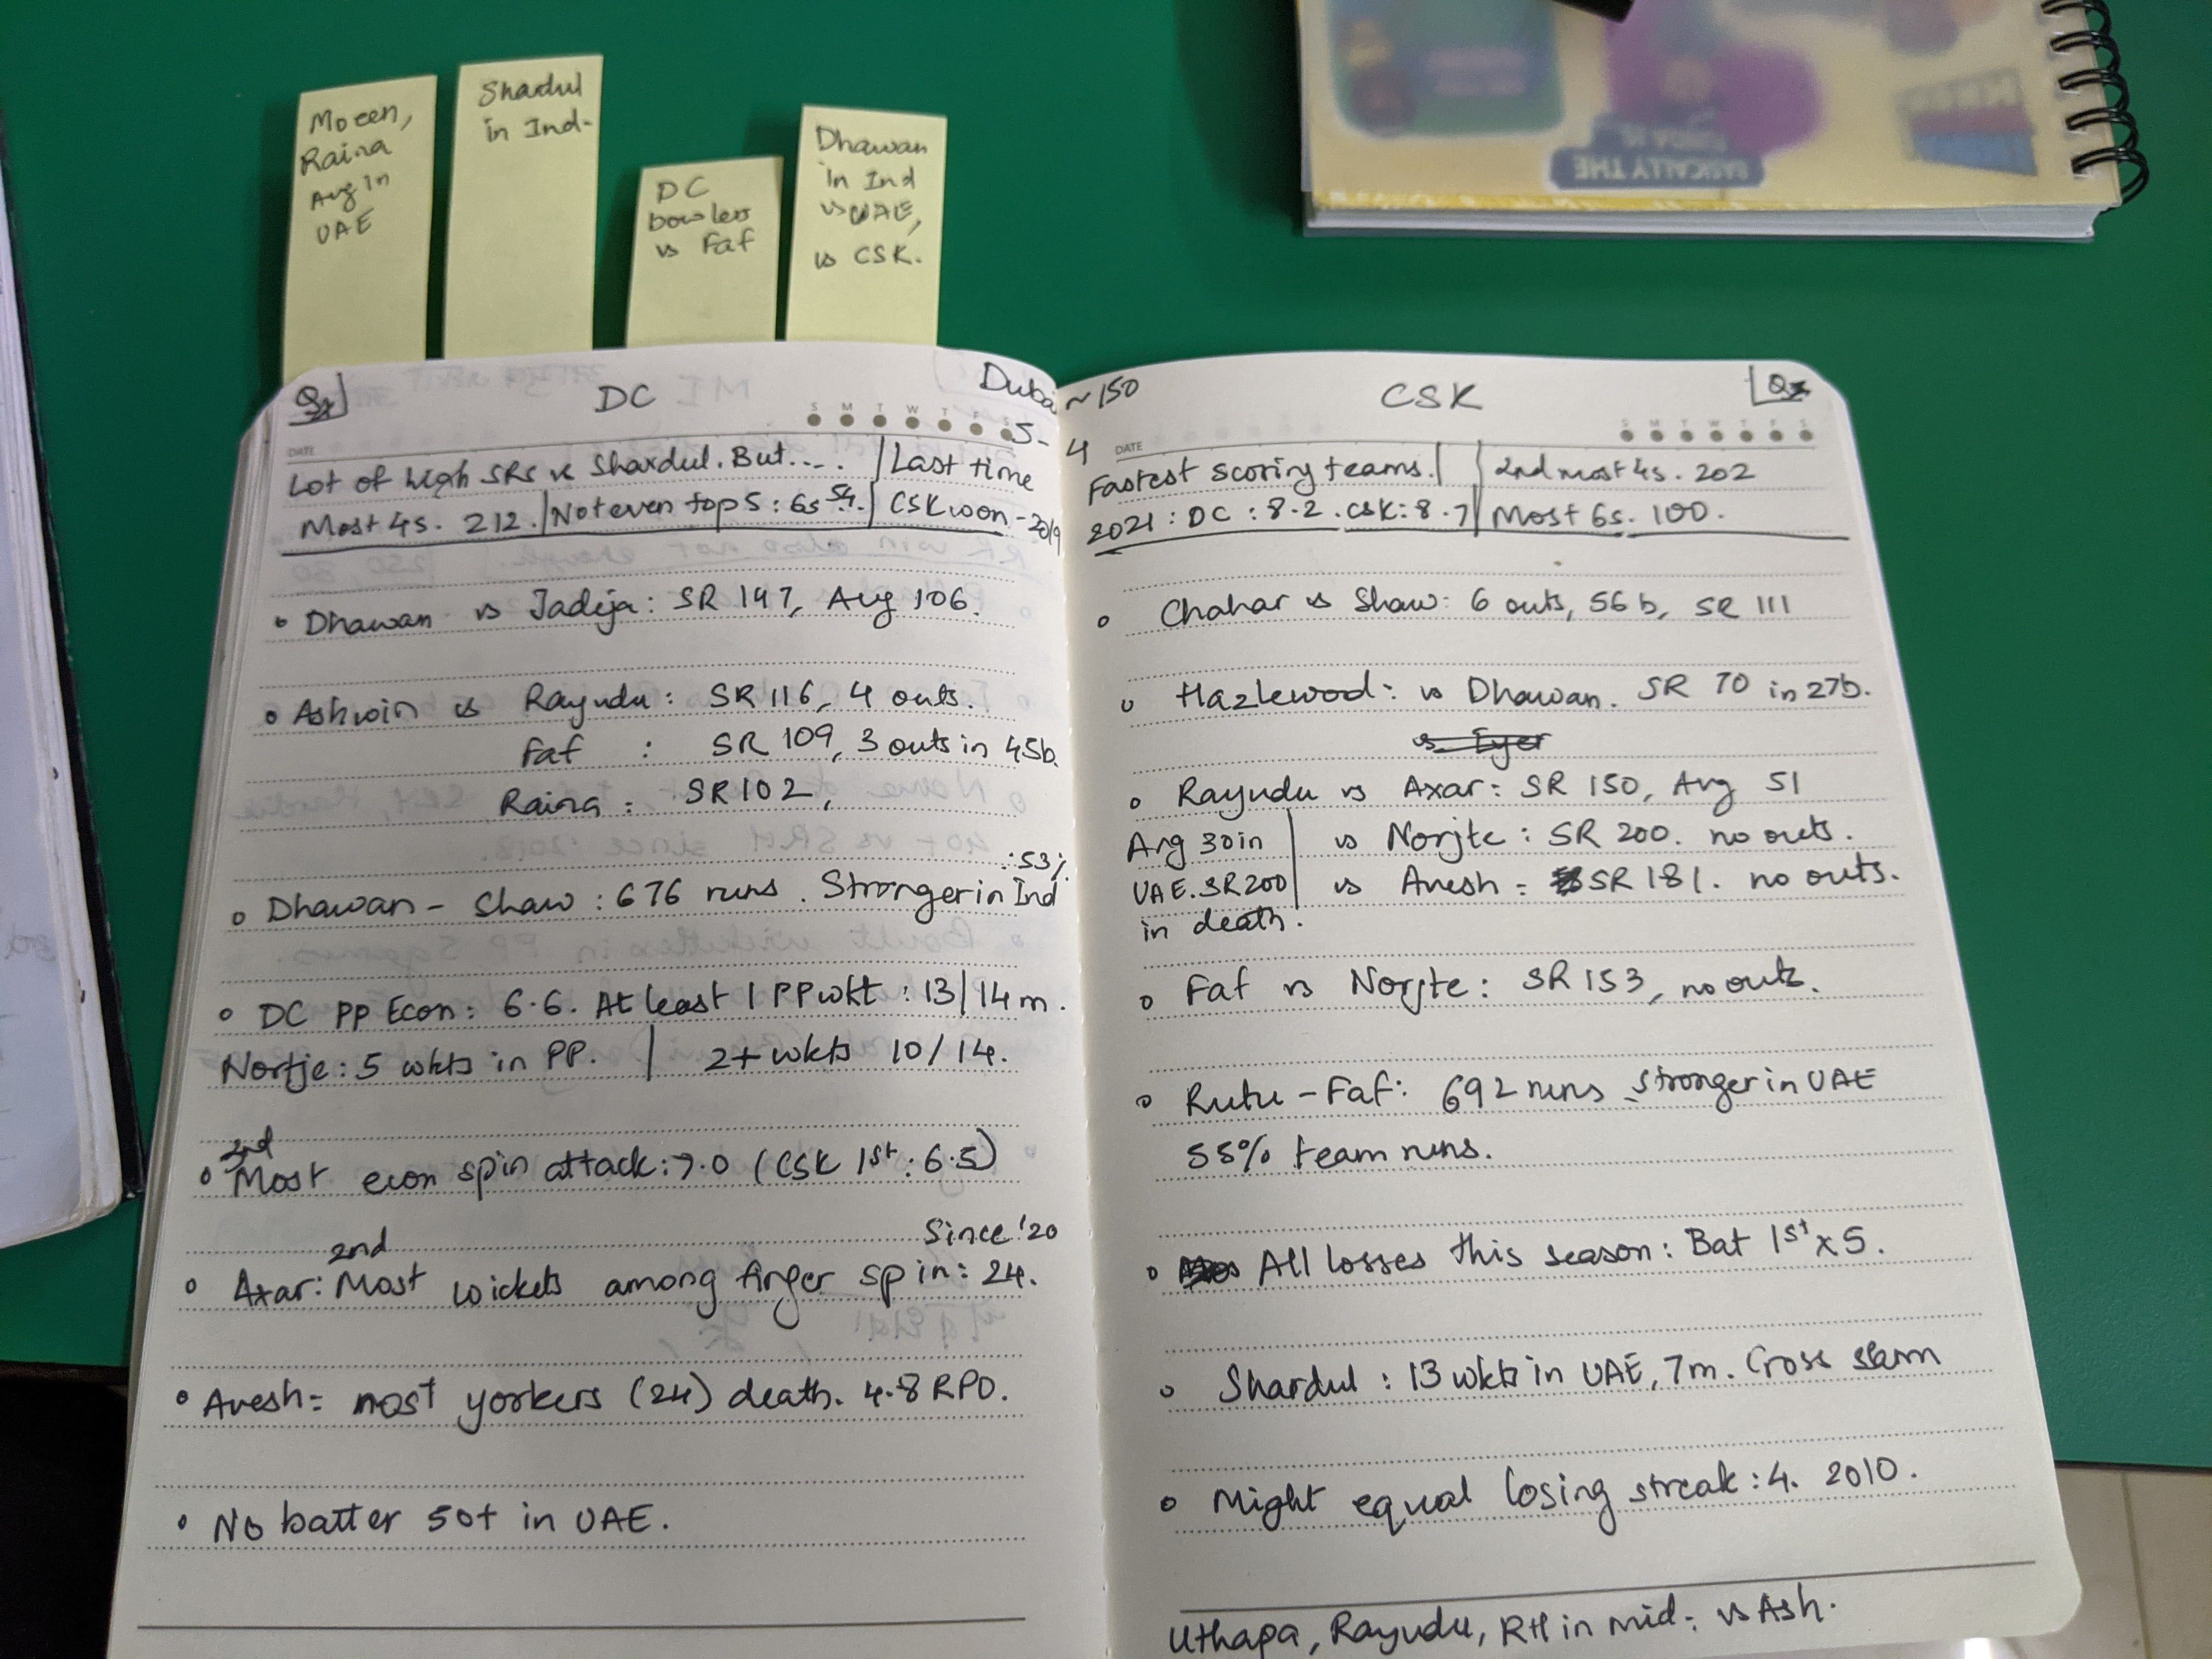 Moeen,
Raina
Avg in
UAE
Shardul
in Ind-
DC
bowlers
vs Faf
Dhawan
in Ind
vs UAE,
vs CSK.
BASICALLY THE
DC
Dubai
S M T W T F S
5-
DATE
Lot of high SRs vs Shardul. But.... | Last time
Most 4s. 212. | Not even top 5 : 6s 54. | CSK won - 2019
• Dhawan vs Jadeja: SR 147, Avg 106.
• Ashwin vs Rayudu: SR 116, 4 outs.
Faf : SR 109, 3 outs in 45b.
Raina : SR 102,
:53%
• Dhawan - Shaw : 676 runs. Stronger in Ind
• DC PP Econ: 6.6. At least 1 PP wkt : 13/14 m.
Nortje: 5 wkts in PP. | 2+ wkts 10/14.
2nd
• Most econ spin attack: 7.0 (CSK 1st : 6.5)
2nd Since '20
• Axar: Most wickets among finger spin: 24.
• Avesh= most yorkers (24) death. 4.8 RPO.
• No batter 50+ in UAE.
~150
CSK
S M T W T F S
4
DATE
Fastest scoring teams. | 2nd most 4s. 202
2021 : DC : 8.2. CSK: 8.7 | Most 6s. 100.
• Chahar vs Shaw: 6 outs, 56 b, SR 111
• Hazlewood: vs Dhawan. SR 70 in 27b.
vs Iyer
• Rayudu vs Axar: SR 150, Avg 51
Avg 30 in | vs Norjte : SR 200. no outs.
UAE. SR 200 | vs Avesh = SR 181. no outs.
in death.
• Faf vs Norjte: SR 153, no outs.
• Rutu - Faf: 692 runs stronger in UAE
55% team runs.
• All losses this season: Bat 1st x 5.
• Shardul : 13 wkts in UAE, 7m. Cross seam
• Might equal losing streak : 4. 2010.
Uthapa, Rayudu, RH in mid: vs Ash.